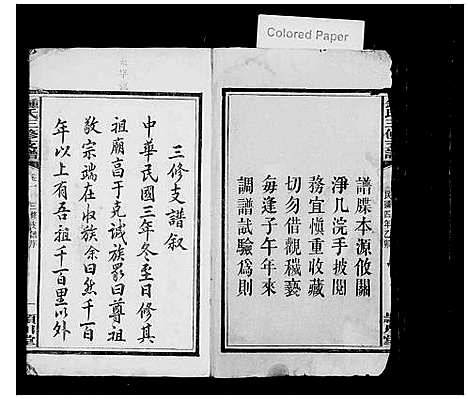 Colored Paper
譜牒本源攸關
淨几浣手披閱
務宜慎重收藏
切勿借觀穢褻
每逢子午年來
調譜試驗為則
三修支譜叙
中華民國三年冬至日修其
祖廟高于克誠族眾曰尊祖
敬宗端在收族余曰然千百
年以上有吾祖千百里以外
鍾氏三修支譜
卷一
潁川堂